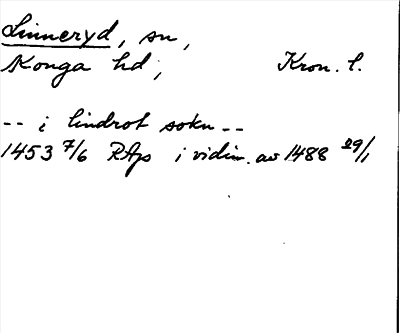 Linneryd, sn,
Konga hd, Kron. l.
-- i lindrot sokn --
1453 7/6 RAp i vidim. av 1488 29/1